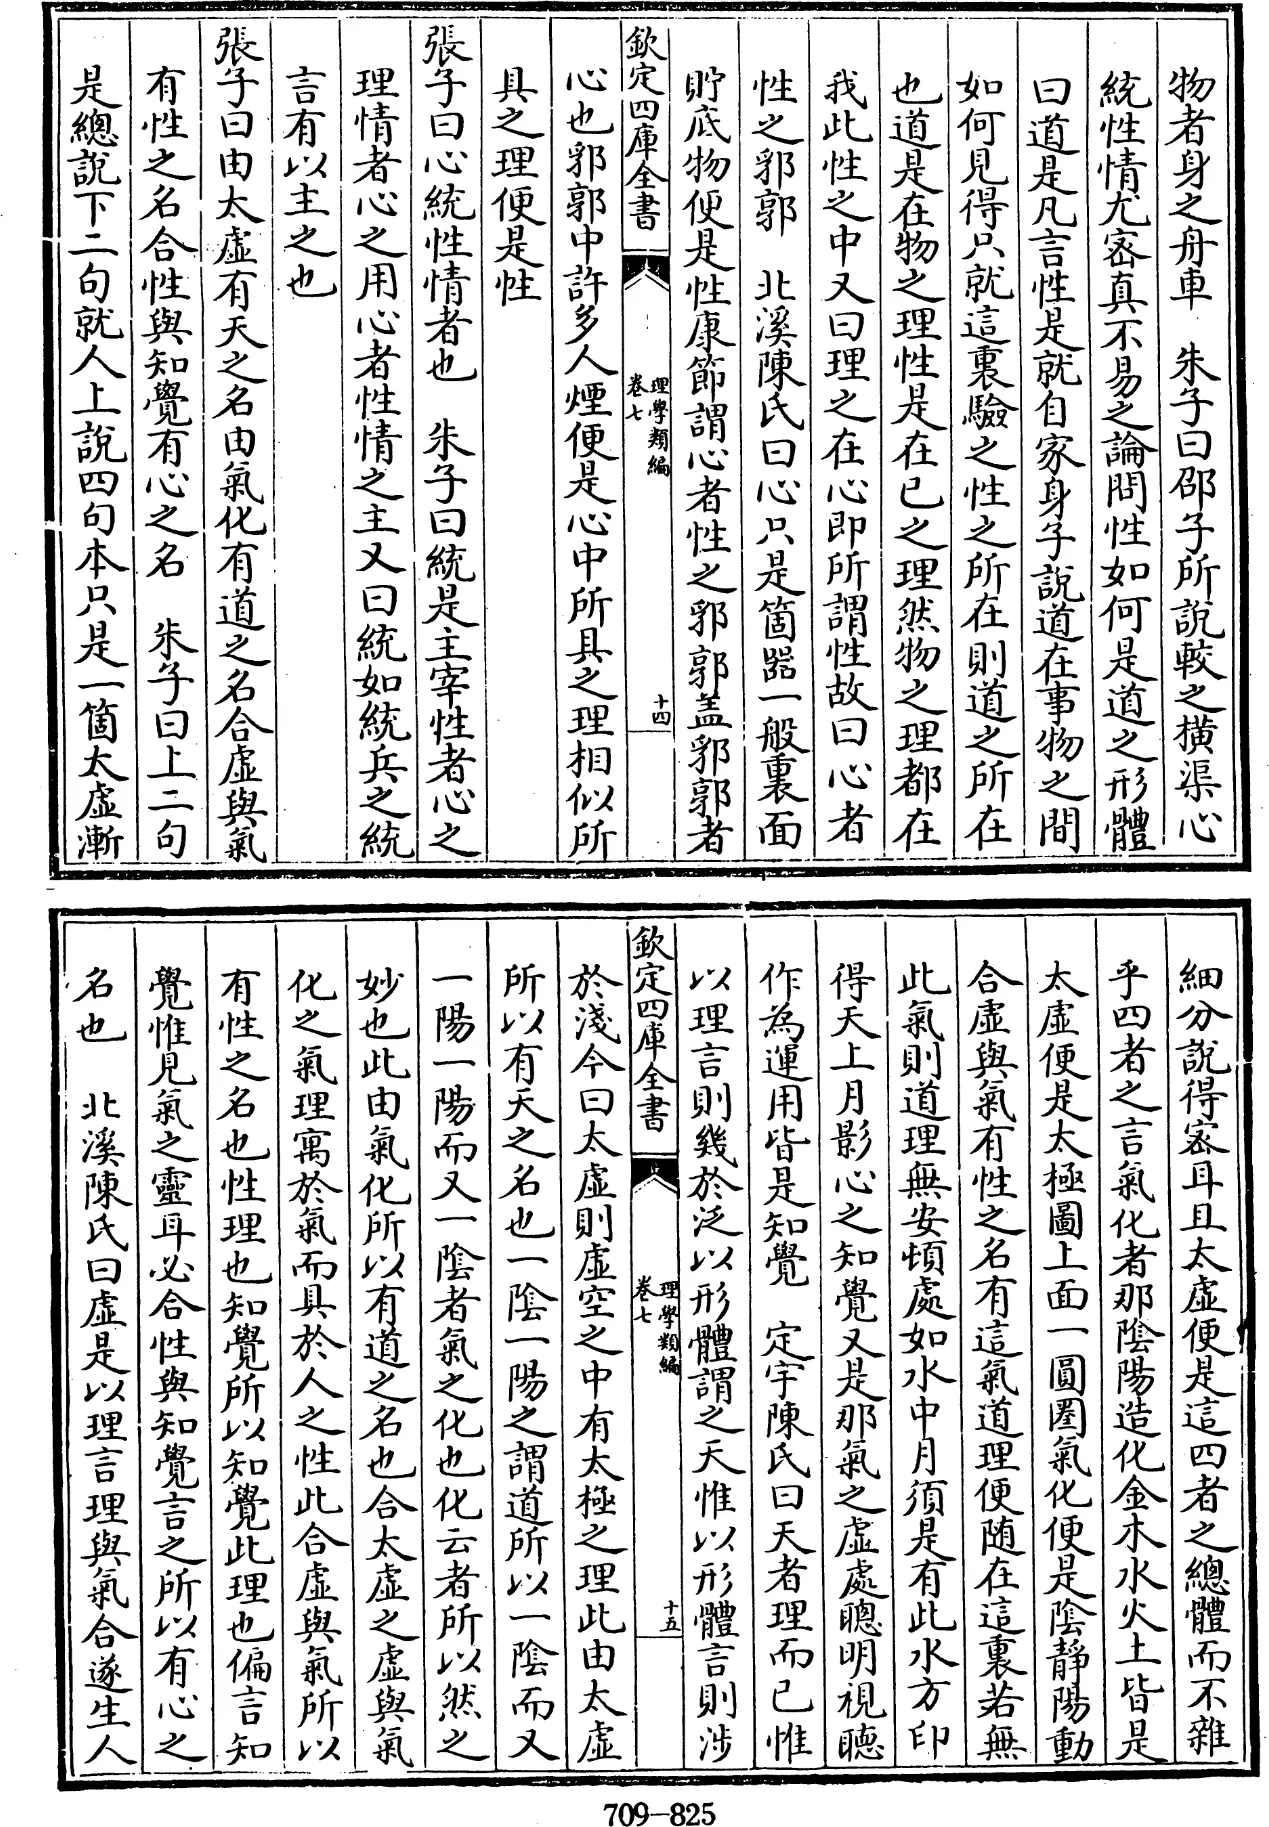 物者身之舟車　朱子曰邵子所說較之橫渠心
統性情尤密真不易之論問性如何是道之形體
曰道是凡言性是就自家身子說道在事物之間
如何見得只就這裏驗之性之所在則道之所在
也道是在物之理性是在已之理然物之理都在
我此性之中又曰理之在心即所謂性故曰心者
性之郛郭　北溪陳氏曰心只是箇器一般裏面
貯底物便是性康節謂心者性之郛郭盖郛郭者
欽定四庫全書
理學類編
卷七
十四
心也郛郭中許多人煙便是心中所具之理相似所
具之理便是性
張子曰心統性情者也　朱子曰統是主宰性者心之
理情者心之用心者性情之主又曰統如統兵之統
言有以主之也
張子曰由太虛有天之名由氣化有道之名合虛與氣
有性之名合性與知覺有心之名　朱子曰上二句
是總說下二句就人上說四句本只是一箇太虛漸
細分說得宻耳且太虛便是這四者之總體而不雜
乎四者之言氣化者那陰陽造化金木水火土皆是
太虛便是太極圖上面一圓圏氣化便是陰靜陽動
合虛與氣有性之名有這氣道理便隨在這裏若無
此氣則道理無安頓處如水中月須是有此水方印
得天上月影心之知覺又是那氣之虛處聰明視聽
作為運用皆是知覺　定宇陳氏曰天者理而已惟
以理言則幾於泛以形體謂之天惟以形體言則涉
欽定四庫全書
理學類編
卷七
十五
於淺今曰太虛則虛空之中有太極之理此由太虛
所以有天之名也一陰一陽之謂道所以一陰而又
一陽一陽而又一陰者氣之化也化云者所以然之
妙也此由氣化所以有道之名也合太虛之虛與氣
化之氣理寓於氣而具於人之性此合虛與氣所以
有性之名也性理也知覺所以知覺此理也偏言知
覺惟見氣之靈耳必合性與知覺言之所以有心之
名也　北溪陳氏曰虛是以理言理與氣合遂生人
709-825